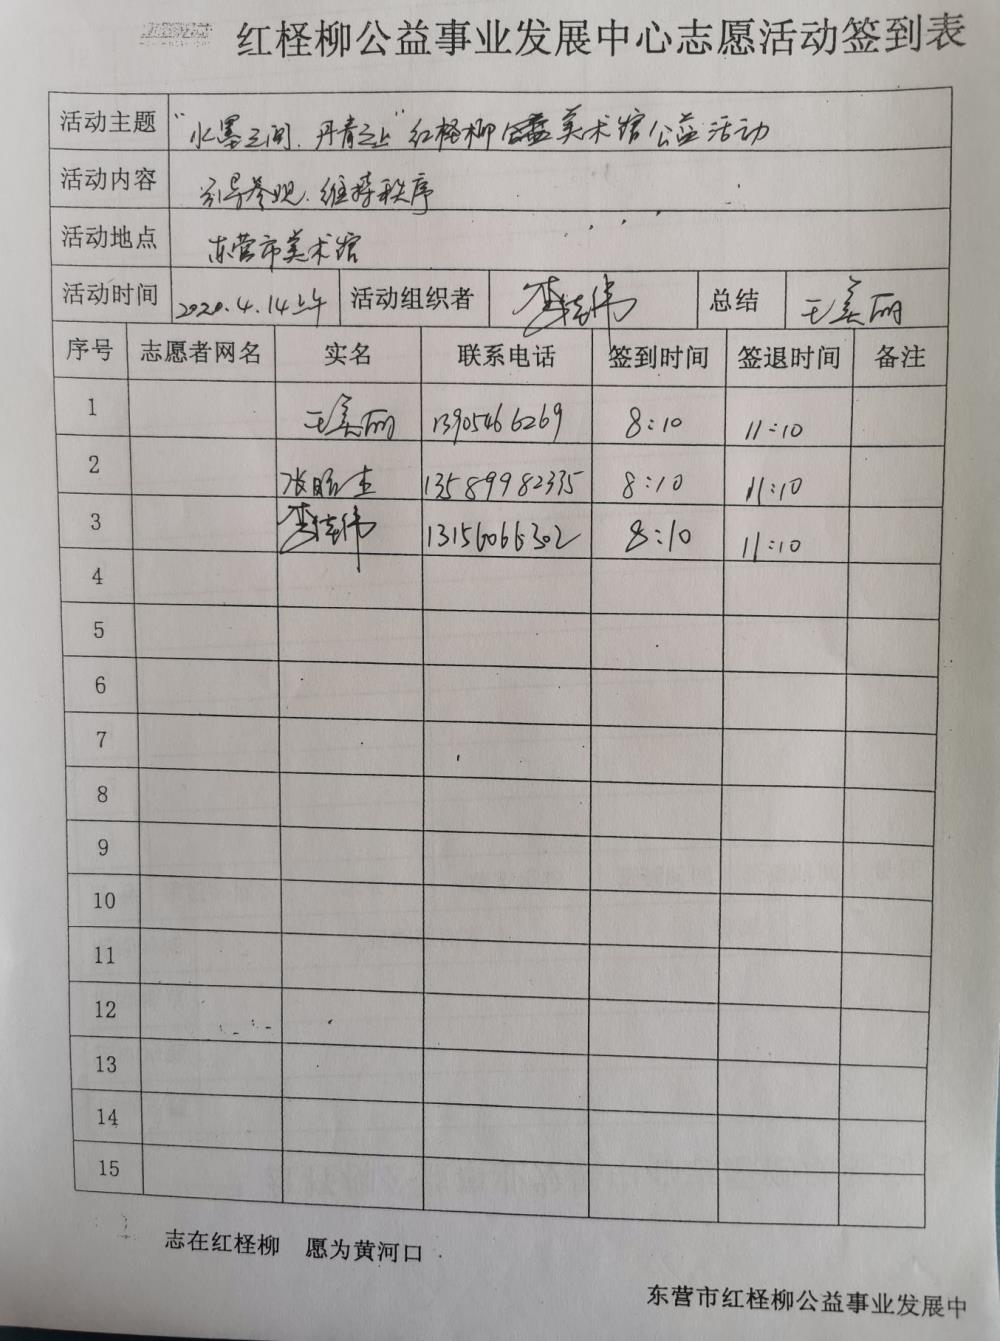 红柽柳公益事业发展中心志愿活动签到表
活动主题 "水墨之间.丹青之上"红柽柳 美术馆公益活动
活动内容 引导参观.维持秩序
活动地点 东营市美术馆
活动时间 2020.4.14上午 活动组织者 李 伟 总结 王美丽
序号 志愿者网名 实名 联系电话 签到时间 签退时间 备注
1 王美丽 13905466269 8:10 11:10
2 张 13589982335 8:10 11:10
3 李 伟 13156066302 8:10 11:10
4
5
6
7
8
9
10
11
12
13
14
15
志在红柽柳 愿为黄河口
东营市红柽柳公益事业发展中